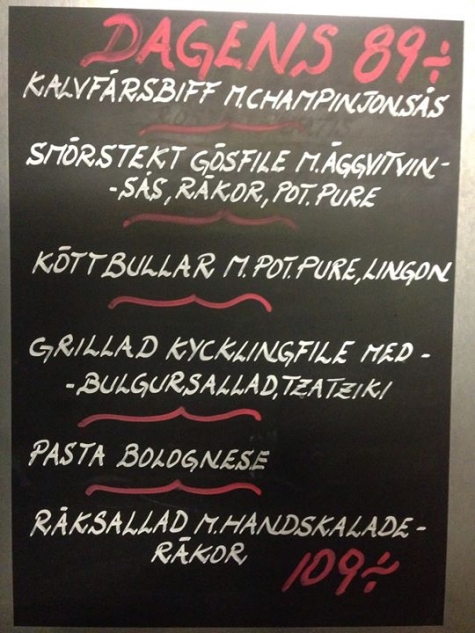 DAGENS 89:-
KALVFÄRSBIFF M.CHAMPINJONSÅS
SMÖRSTEKT GÖSFILE M.ÄGGVITVIN-
-SÅS, RÄKOR, POT.PURE
KÖTTBULLAR M.POT.PURE, LINGON
GRILLAD KYCKLINGFILE MED-
-BULGURSALLAD, TZATZIKI
PASTA BOLOGNESE
RÄKSALLAD M.HANDSKALADE-
RÄKOR
109:-